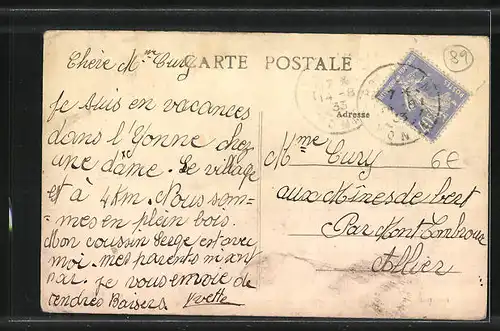 Chère Mme Cury
CARTE POSTALE
89
Je suis en vacances
dans l'Yonne chez
une dâme. Le village
est à 4 Km. Nous som=
=mes en plein bois.
Mon coussin Serge est avec
moi. mes parents n'y sont
pas. Je vous envoie de
tendres Baisers Yvette
14 -8
33
Adresse
Mme Cury
6E
aux Mines de bert
Par Montcombroux
Allier